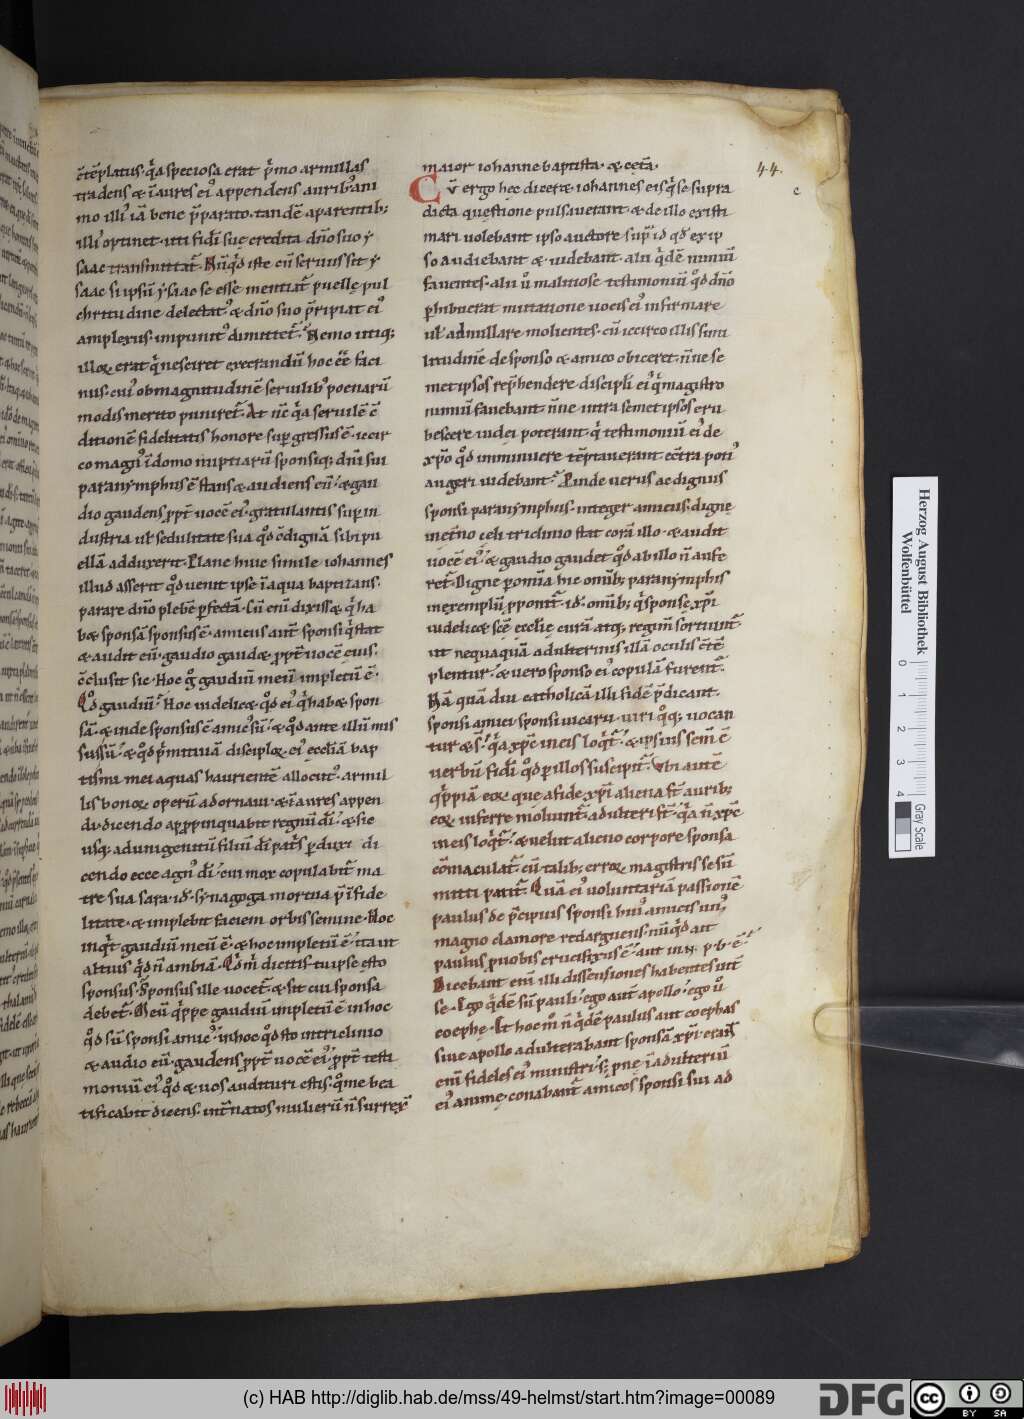 c̄tēplatus. q̇a speciosa erat p̄mo armillas
tradens & īaures ei' appendens aurib; ani
mo illi' iā bene p̄parato. tandē aparentib;
illi' optinet. uti fidī suę credita dn̄o suo y
saac transmittat̄. Nūq̇d iste cū seruus sit y
saac si ipsū ysaac se esse mentiat̄ puellę pul
chritudine delectat'. & dn̄o suo p̄ripiat ei'
amplexus. impunit' dimittet̄. Nemo utiq;
illoꝝ erat q̇ nesciret execrandū hoc ēē faci
nus. cui' ob magnitudinē seruilib; poenarū
modis merito puniret̄. At nc̄ q̇a seruilē c̄
ditionē fidelitatis honore sup̄gressus ē. iecir
co magn' ī domo nuptiarū sponsiq; dn̄i sui
paranymphus ē stans & audiens eū. & gau
dio gaudens ꝓpt̄ uocē ei'. gratulantis sup̄ in
dustria ul̄ sedulitate sua q̊d c̄dignā sibi pu
ellā adduxerit. Plane huic simile iohannes
illud asserit q̊d uenit ipse ī aqua baptizans.
parare dn̄o plebē ꝑfectā. Cū enī dixiss& q̇ ha
b& sponsā sponsus ē. amicus aut̄ sponsi q̇ stat
& audit eū. gaudio gaud& ꝓpt̄ uocē eius.
c̄clusit sic. Hoc g̊ gaudiū meū impletū ē.
Q̊d gaudiū? Hoc uidelic& q̊d ei' q̇ hab& spon
sā. & inde sponsus ē amic' sū. & q̊d ante illū mis
sus sū. & q̊d p̄mitiuā disciploꝝ ei' ecclīā bap
tismi mei aquas haurientē allocut'. armil
lis bonoꝝ operū adornaui. & īaures appen
di. dicendo apꝓpinquabit regnū dī. & sic
usq; ad unigenitū filiū dī pat̄s ꝑduxi di
cendo ecce agn' dī. cui mox copulabit̄ ma
tre sua sara. id. synagoga mortua p̄ īfide
litate. & implebit faciem orbis semine. Hoc
inq̇t gaudiū meū ē. & hoc impletū ē. ita ut
altius q̇d n̄ ambiā. Q̊m̄ dictus tu ipse esto
sponsus. Sponsus ille uocet̄. & sit cui sponsa
debet̄. Meū q̇ppe gaudiū impletū ē in hoc
q̊d sū sponsi amic'. in hoc q̊d sto in triclinio
& audio eū. gaudens ꝓpt̄ uocē ei'. ꝓpt̄ testi
moniū ei' q̊d & uos audituri estis. q̊ me bea
tificabit dicens. int̄ natos mulierū n̄ surrex̄
44.
c
maior iohanne baptista. & cęt̄a.
Cū ergo hęc dicer& iohannes eis q̇ se supra
dicta quęstione pulsauerant. & de illo existi
mari uolebant ipso auctore sup̄ id qd' ex ip
so audiebant & uidebant. alii q̇dē nimiū
fauentes. alii ū malitiose testimoniū q̊d dn̄o
ꝑhibuerat mutatione uocis ei' infirmare
ul̄ adnullare molientes. cū iccirco illis simi
litudinē de sponso & amico obiceret. n̄ne se
met ipsos rep̄hendere discipli ei' q̇ magistro
nimiū fauebant. n̄ne intra semet ipsos eru
bescere iudei poterant. q̇ testimoniū ei' de
xp̄o q̊d imminuere tēptauerant ec̄tra poti'
augeri uidebant? Pinde uerus ac dignus
sponsi paranymphus. integer amicus. digne
inet̄no celi triclinio stat corā illo. & audit
uocē ei'. & gaudio gaudet q̊d ab illo n̄ aufe
ret̄. Digne ꝑ omīa hic omīb; paranymphis
in exemplū ꝓponit̄. id. omīb; q̇ sponsę xp̄i
uidelic& scē ecclīę curā atq; regimī sortiunt̄
ut nequaquā adulterinis illā oculis c̄tē
plentur. & uero sponso ei' copulā furent̄.
Nā quādiu catholicā illi fidē p̄dicant.
sponsi amici sponsi uicarii. uiri q̊q; uocan
tur & st̄. q̇a xp̄c in eis loq̇t̄. & ipsius sem̄ ē
uerbū fidī q̊d ꝑ illos suscipit̄. Vbi autē
q̇ppiā eoꝝ que a fide xp̄i aliena st̄ aurib;
eoꝝ inferre moliunt̄. adulteri st̄. q̇a n̄ xp̄c
in eis loq̇t̄. & uelut alieno corpore sponsa
c̄maculat̄. cū talib; erroꝝ magistris se sū
mitti patit̄. Quā ei' uoluntariā passionē
paulus de p̄cipuis sponsi hui' amicis un'
magno clamore redarguens. nūq̇d ait
paulus ꝓ uobis crucifixus ē. aut in n. p. b. ē?
Dicebant enī illi dissensiones habentes int̄
se. Ego q̇dē sū pauli. ego aut̄ apollo. ego ū
coephę. Et hoc m̊ n̄ q̇dē paulus aut coephas
siue apollo adulterabant sponsā xp̄i. erant
enī fideles ei' ministri. s; pnę ī adulteriū
ei' animę. conabant̄ amicos sponsi sui ad
Herzog August Bibliothek
Wolfenbüttel
0 1 2 3 4
Gray Scale
(c) HAB http://diglib.hab.de/mss/49-helmst/start.htm?image=00089
DFG
cc
BY SA